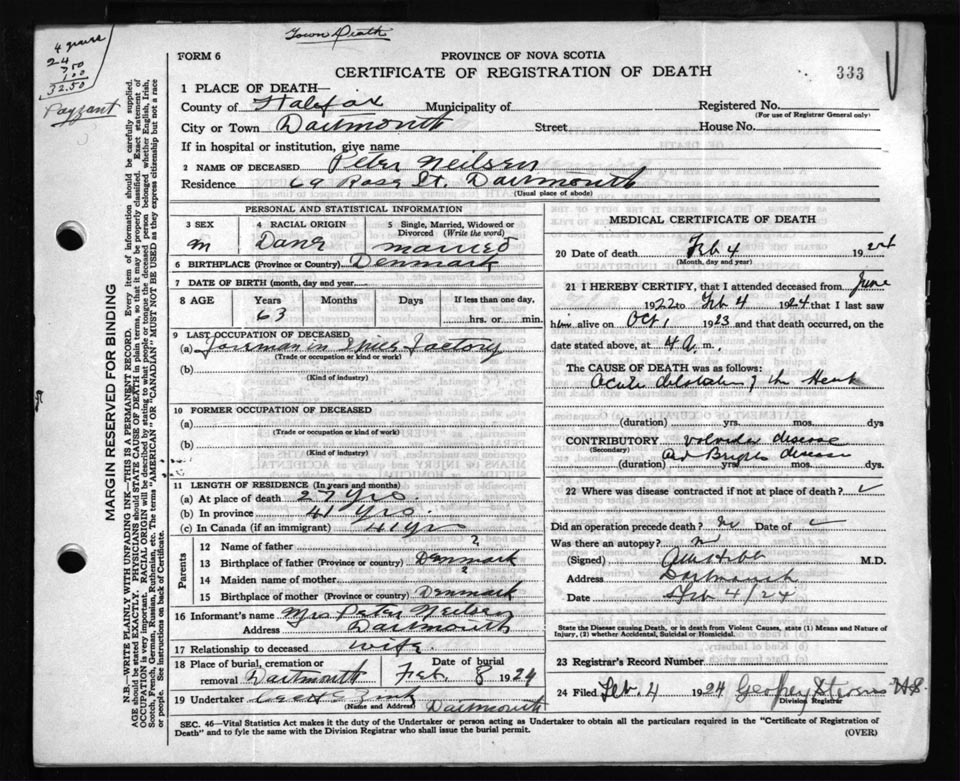 Town Death
4 graves
24
7 50
1 00
32.50
Payzant
FORM 6
PROVINCE OF NOVA SCOTIA
CERTIFICATE OF REGISTRATION OF DEATH
333
1 PLACE OF DEATH—
County of Halifax Municipality of Registered No.
(For use of Registrar General only)
City or Town Dartmouth Street House No.
If in hospital or institution, give name
2 NAME OF DECEASED Peter Neilsen
Residence 69 Rose St. Dartmouth
(Usual place of abode)
PERSONAL AND STATISTICAL INFORMATION
3 SEX
M
4 RACIAL ORIGIN
Dane
5 Single, Married, Widowed or Divorced (Write the word)
married
6 BIRTHPLACE (Province or Country) Denmark
7 DATE OF BIRTH (month, day and year)
8 AGE Years Months Days If less than one day,
63 hrs. or min.
9 LAST OCCUPATION OF DECEASED
(a) Foreman in Factory
(Trade or occupation or kind or work)
(b)
(Kind of industry)
10 FORMER OCCUPATION OF DECEASED
(a)
(Trade or occupation or kind of work)
(b)
(Kind of Industry)
11 LENGTH OF RESIDENCE (In years and months)
(a) At place of death 27 yrs.
(b) In province 41 yrs.
(c) In Canada (if an immigrant) 41 yrs
Parents
12 Name of father ?
13 Birthplace of father (Province or country) Denmark
14 Maiden name of mother ?
15 Birthplace of mother (Province or country) Denmark
16 Informant's name Mrs Peter Neilsen
Address Dartmouth
17 Relationship to deceased wife.
18 Place of burial, cremation or Date of burial
removal Dartmouth Feb. 8 1924
19 Undertaker Zink
(Name and Address) Dartmouth
MEDICAL CERTIFICATE OF DEATH
20 Date of death Feb 4 1924
(Month, day and year)
21 I HEREBY CERTIFY, that I attended deceased from June
1922 to Feb 4 1924 that I last saw
him alive on Oct 1 1923 and that death occurred, on the
date stated above, at 4 a. m.
The CAUSE OF DEATH was as follows:
Acute dilatation of the Heart
(duration) yrs. mos. dys
CONTRIBUTORY valvular disease
(Secondary) and Brights disease
(duration) yrs mos. dys.
22 Where was disease contracted if not at place of death?
Did an operation precede death? no Date of
Was there an autopsy? no
(Signed) M.D.
Address Dartmouth
Date Feb 4/24
State the Disease causing Death, or in death from Violent Causes, state (1) Means and Nature of
Injury, (2) whether Accidental, Suicidal or Homicidal.
23 Registrar's Record Number
24 Filed Feb. 4 1924 Geoffrey Stevens
Division Registrar
SEC. 46—Vital Statistics Act makes it the duty of the Undertaker or person acting as Undertaker to obtain all the particulars required in the "Certificate of Registration of
Death" and to fyle the same with the Division Registrar who shall issue the burial permit.
(OVER)
MARGIN RESERVED FOR BINDING
N.B.—WRITE PLAINLY WITH UNFADING INK—THIS IS A PERMANENT RECORD. Every item of information should be carefully supplied.
AGE should be stated EXACTLY. PHYSICIANS should STATE CAUSE OF DEATH in plain terms, so that it may be properly classified. Exact statement of
OCCUPATION is very important. RACIAL ORIGIN will be described by stating to what people or tongue the deceased person belonged whether English, Irish,
Scotch, French, German, Russian, Ruthenian, etc. The terms "AMERICAN" or "CANADIAN" MUST NOT BE USED as they express citizenship but not a race
or people. See instructions on back of Certificate.